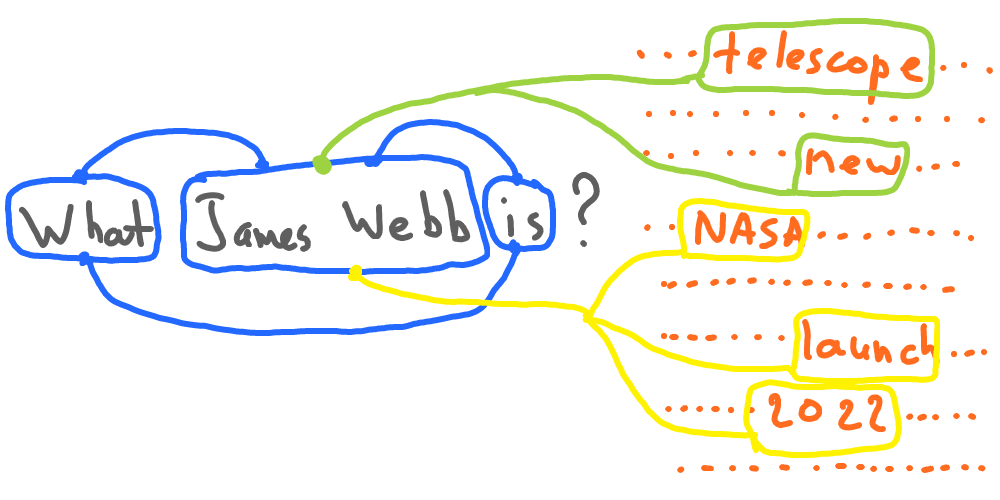 What James Webb is?
telescope
new
NASA
launch
2022